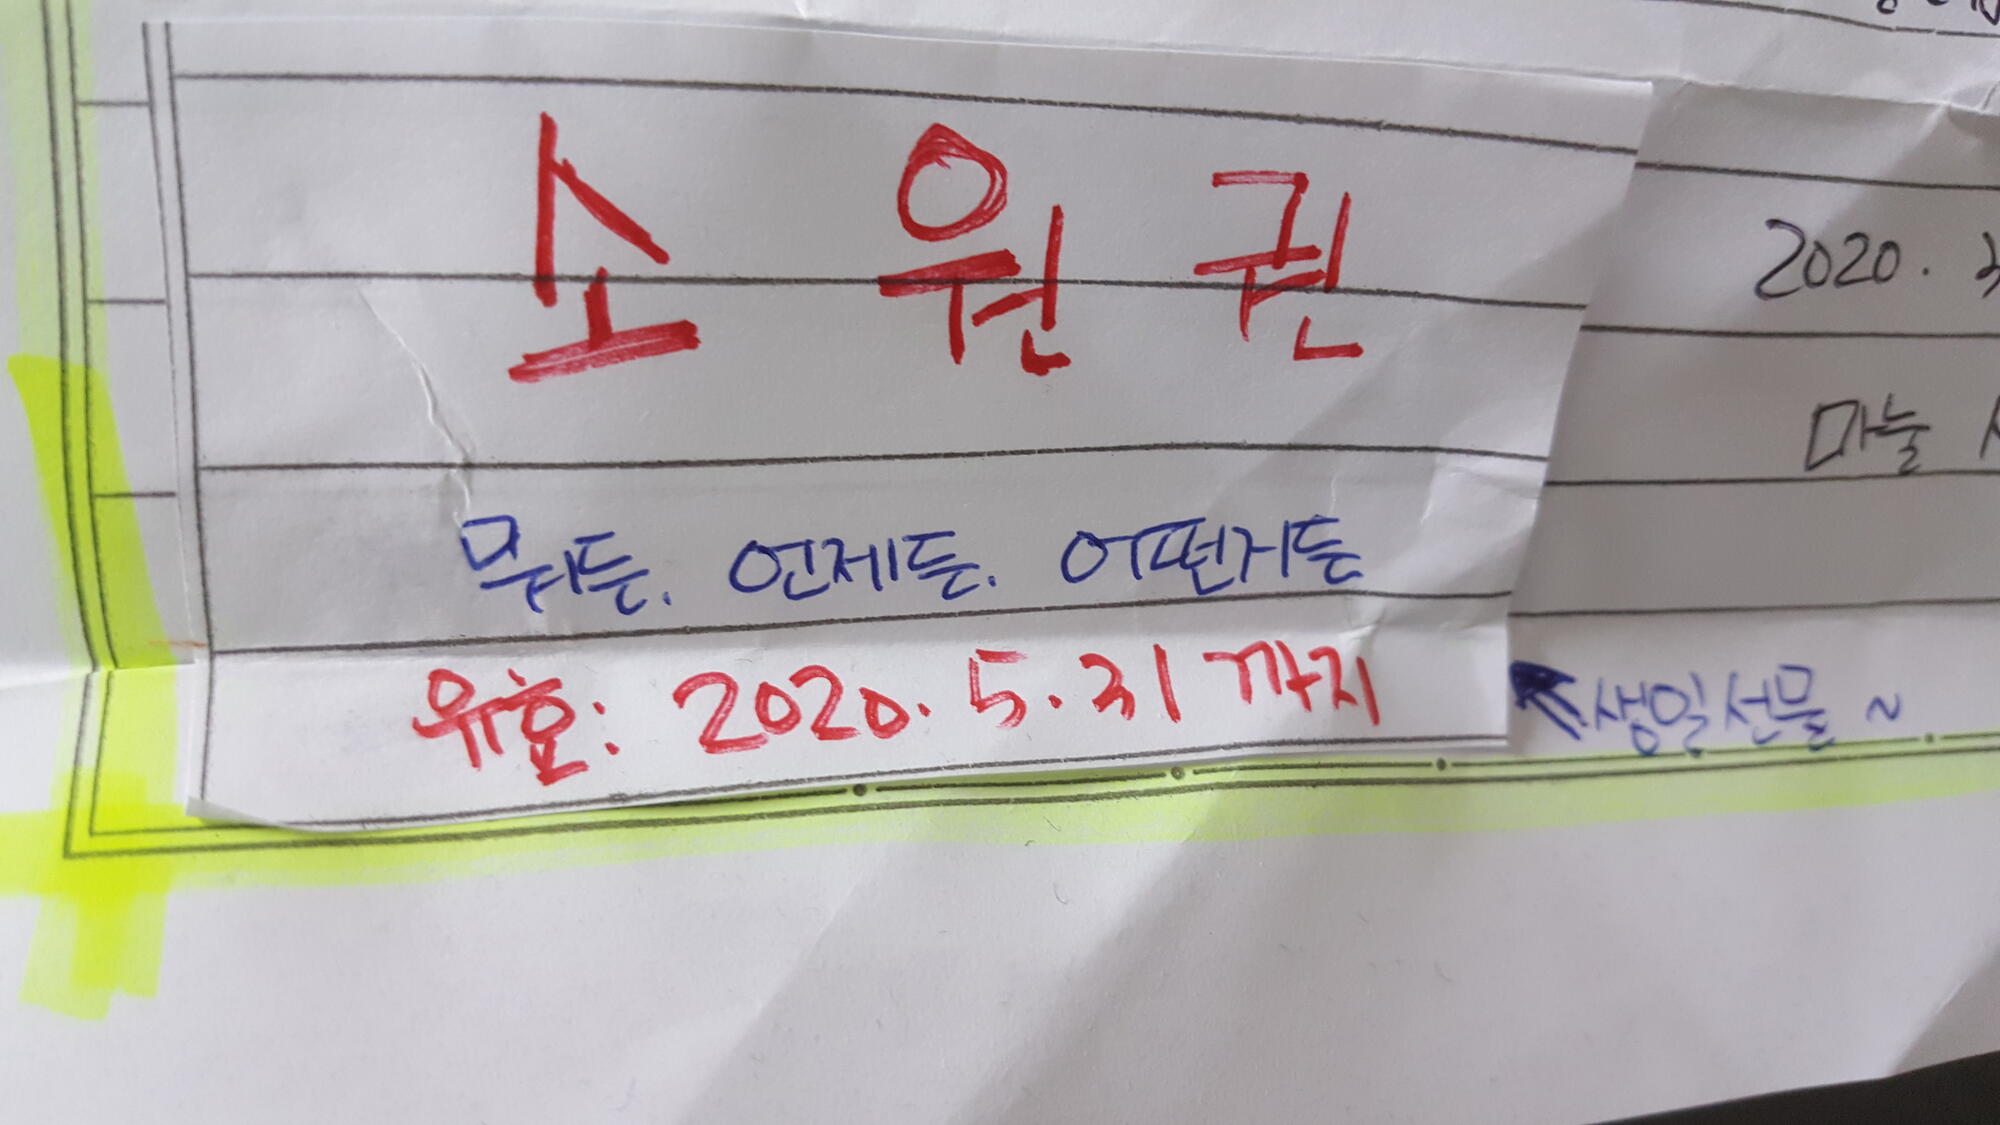 소원권
2020. 3
마늘
뭐든. 언제든. 어떤거든
유효: 2020. 5. 31 까지
생일선물 ~